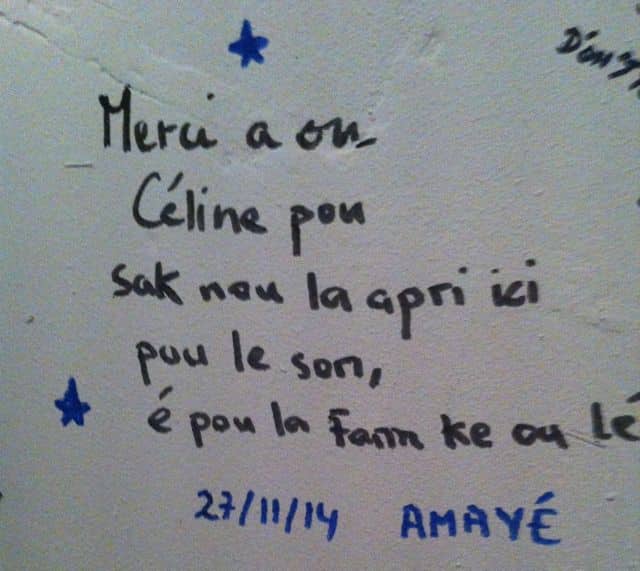 Merci a ou
Céline pou
sak nou la apri ici
pou le son,
é pou la Fanm ke ou lé
27/11/14 AMAYÉ